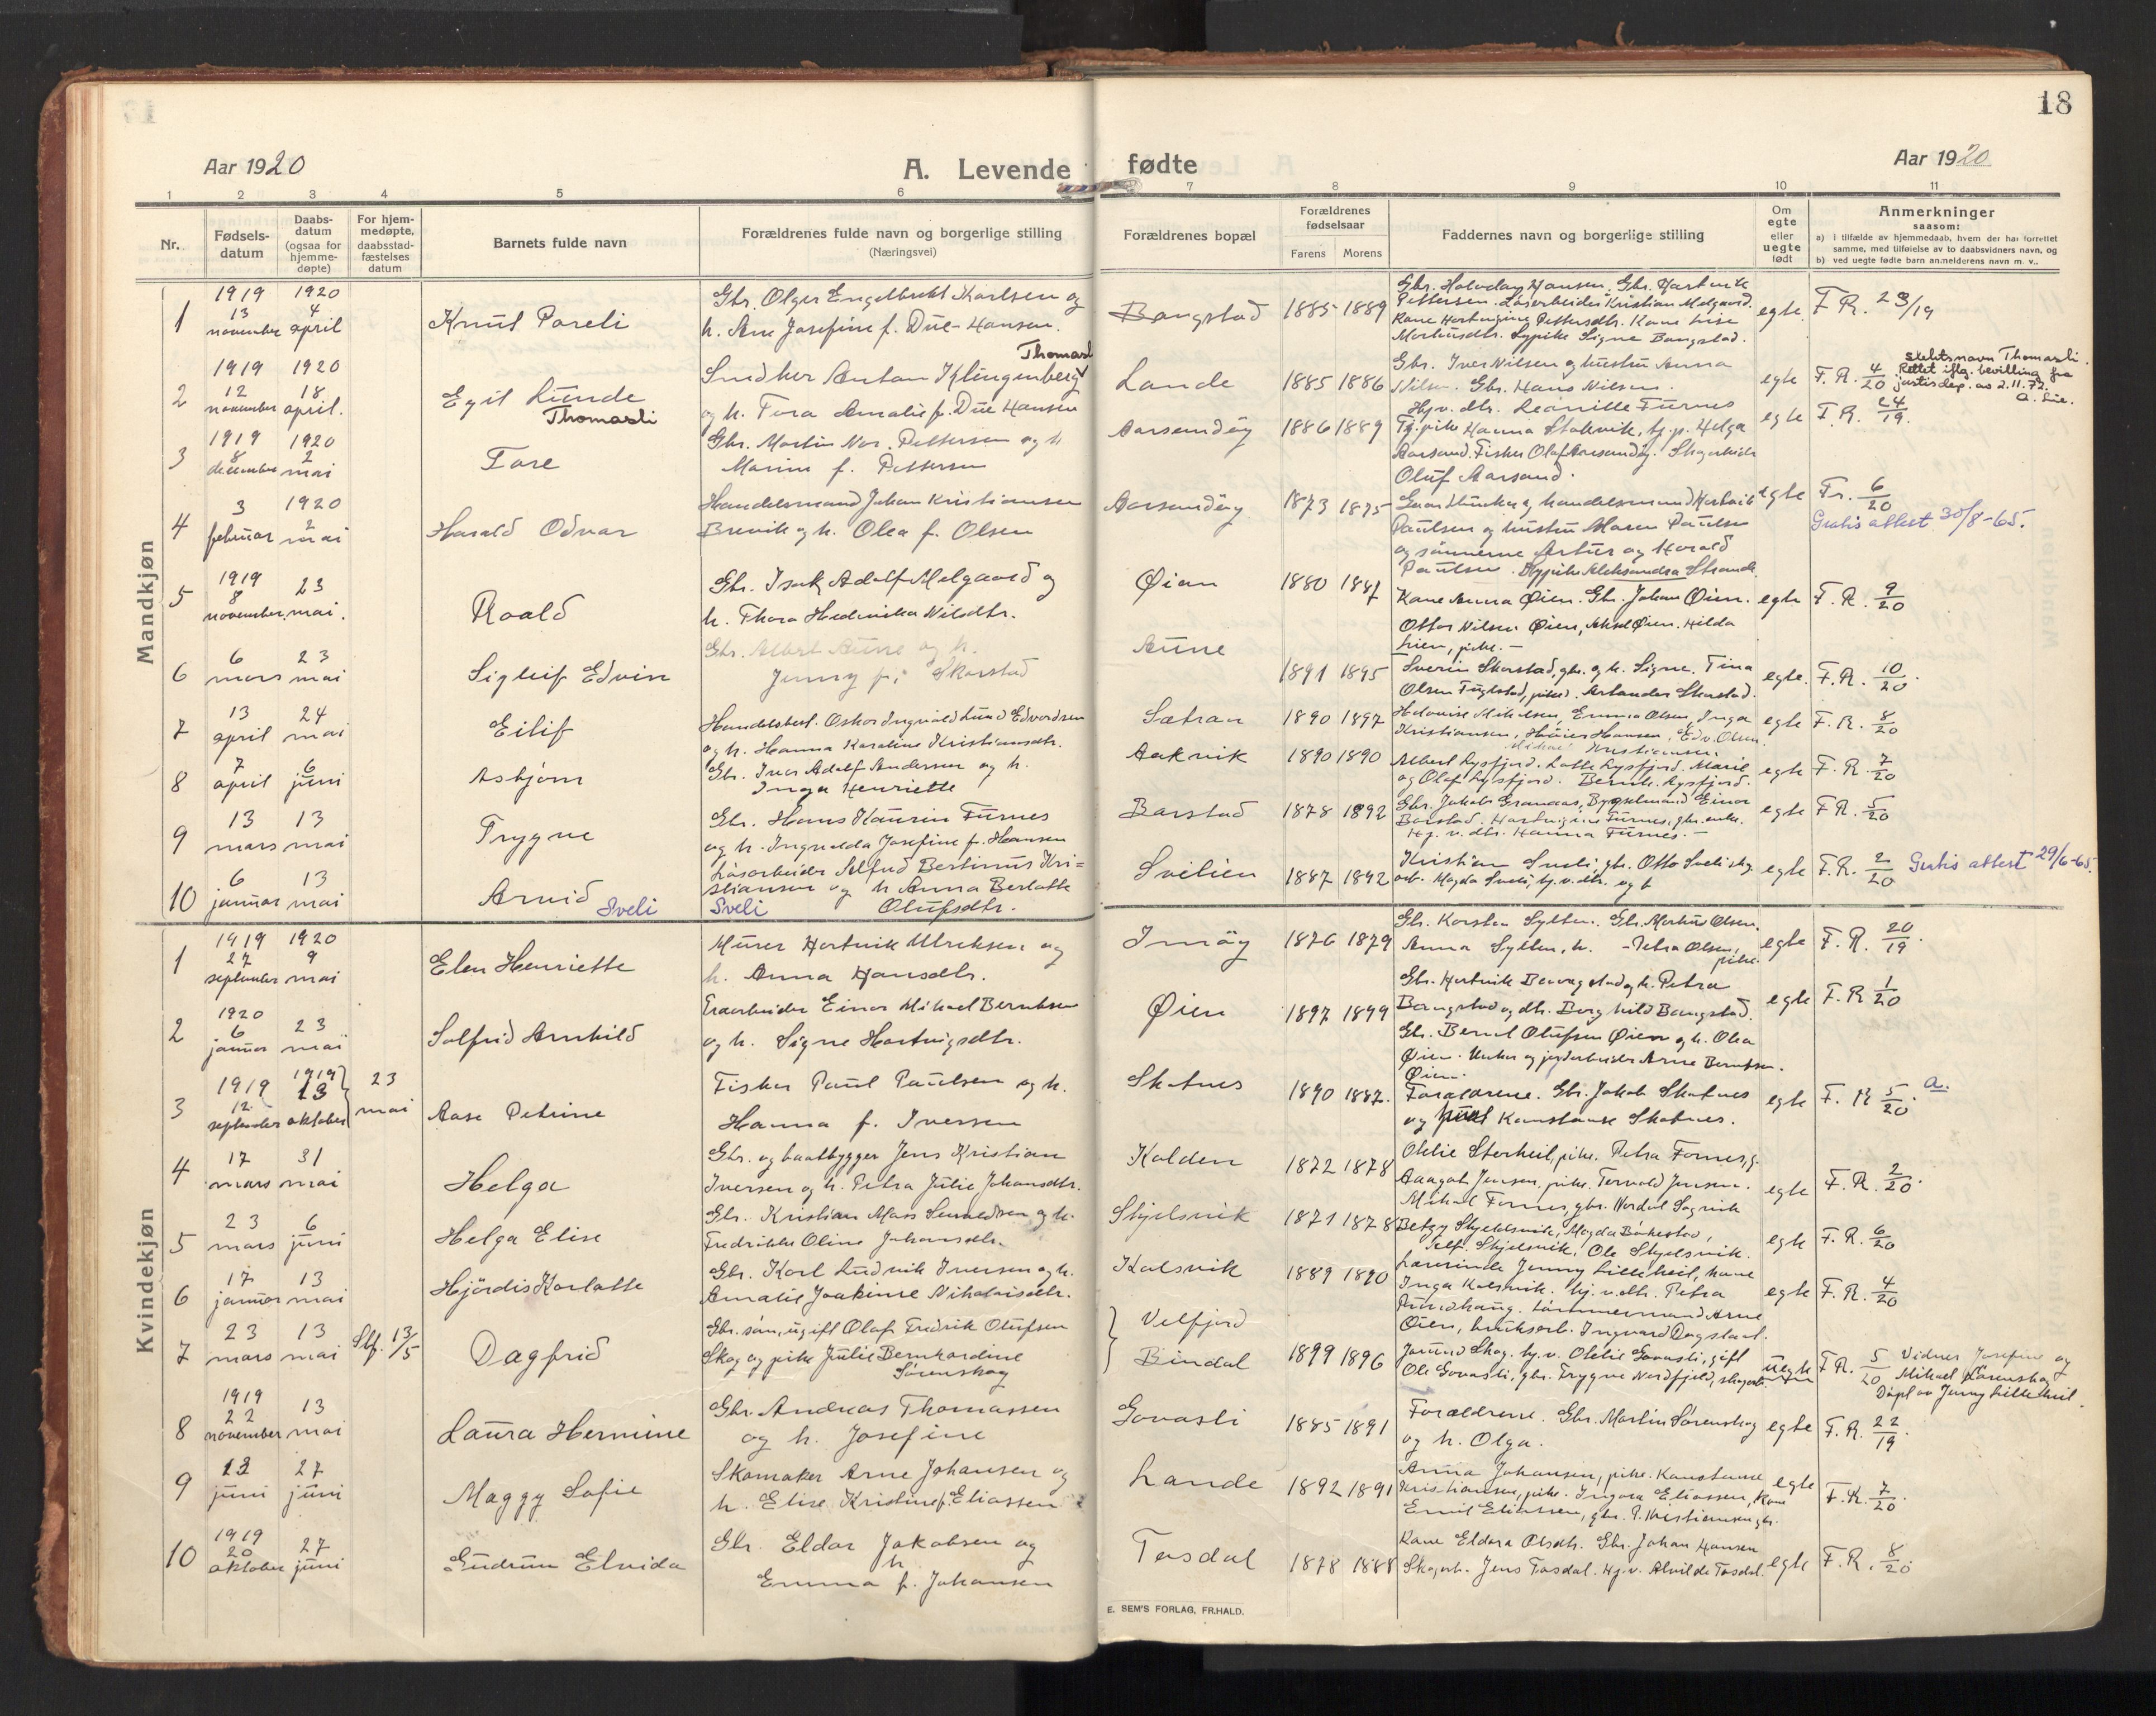 18
Aar 1920
A. Levende fødte
Aar 1920
1 2 3 4 5 6 7 8 9 10 11
Nr.
Fødsels-
datum
Daabs-
datum
(ogsaa for
hjemme-
døpte)
For hjem-
medøpte,
daabsstad-
fæstelses
datum
Barnets fulde navn
Forældrenes fulde navn og borgerlige stilling
(Næringsvei)
Forældrenes bopæl
Forældrenes
fødselsaar
Farens Morens
Faddernes navn og borgerlige stilling
Om
egte
eller
uegte
født
Anmerkninger
saasom:
a) i tilfælde av hjemmedaab, hvem der har forrettet
samme, med tilføielse av to daabsvidners navn, og
b) ved uegte fødte barn anmelderens navn m. v..
Mandkjøn
1
1919 1920
13 4
november april
Knut Poreli
Gbr. Olger Engelbrekt Karlsen og
h. Ane Josefine f. Due-Hansen.
Bangstad
1885 1889
Gbr. Halvdan Hansen, Gbr. Hartvik
Pettersen. Løsarbeider Kristian Melgaard.
egte
F. R. 23/19
2
1919 1920
12 18
november april.
Egil Lunde
Thomasli
Thomasli
Smed her Anton Klingenberg
og h. Tora Amalie f. Due Hansen
Lande
1885 1886
Gbr. Iver Nilsen og hustru Anna
Nilsen. Gbr. Hans Nilsen.
egte
F. R. 4/20
slektsnavn Thomasli.
Rettet iflg. bevilling fra
justisdep. av 2.11.72.
3
1919 1920
8 2
december mai
Tore
Gbr. Martin Nor. Pettersen og h
Marine f. Pettersen
Aarsandøy
1886 1889
Hj. v. dtr. Leonille Furnes
Tj. pike Hanna Stokvik, tj. p. Helga
Aarsand. Fisker Olaf Aarsandøy. Skogarbeider
Oluf Aarsand.
egte
F. R. 24/19.
4
1920
3 2
februar mai
Harald Odvar
Handelsmand Johan Kristiansen
Brevik og h. Olea f. Olsen
Aarsandøy
1873 1875
Paulsen og hustru Maren Paulsen
og sønnerne Artur og Harald
Paulsen. Sypike Aleksandra Strand.
egte
Fr. 6/20
Gratis attest 30/8-65.
5
1919
8 23
november mai.
Roald
Gbr. Isak Adolf Melgaard og
h. Thora Hedevika Nilsdtr.
Øien
1880 1887
Kone Anna Øien. Gbr. Johan Øien.
Ottar Nilsen Øien, Aksel Øien. Hilda
Lien, pike. -
egte
F. R. 9/20
6
6 23
mars mai
Sigleif Edvin
Gbr. Albert Aune og h.
Jenny f. Skarstad
Aune
1891 1895
Sverin Skarstad, gbr. og h. Signe. Tina
Olsen Fuglstad, pike. Arlander Skarstad.
egte.
F. R. 10/20.
7
13 24
april mai
Eilif
Handelsbest. Oskar Ingvald Lund Edvardsen
og h. Hanna Karoline Kristiansdtr.
Sætran
1890 1897
Kristiansen, Høier Hansen, Edv. Olsen.
egte
F. R. 8/20
8
7 6
april juni
Asbjørn
Gbr. Iver Adolf Andersen og h.
Inga Henriette
Aakvik
1890 1890
Albert Lysfjord. Lotte Lysfjord. Marie
og Olaf Lysfjord. Bernh. Lysfjord.
egte
F. R. 7/20
9
13 13
mars mai
Trygve
Gbr. Hans Kaurin Furnes
og h. Ingvalda Josefine f. Hansen
Barstad
1878 1892
Gbr. Jakob Granaas, Bygselmand Einar
Barstad. Hartvigine Furnes, gbr. enke.
Hj. v. dtr. Hanna Furnes. -
egte
F R. 5/20
10
6 13
januar mai
Arvid Sveli
Løsarbeider Alfred Bertinus Kri=
stiansen og h Anna Berlotte
Sveli Olufsdtr.
Svelien
1887 1892
Kristian Sveli, gbr. Otto Sveli skog
arb. Magda Sveli, hj. v. dtr. og f
egte
F. R. 2/20
Gratis attest 29/6-65.
Kvindekjøn
1
1919 1920
27 9
september mai
Elen Henriette
Murer Hartvik Ulriksen og
h. Anna Hansdtr.
Imøy
1876 1879
Gbr. Karsten Sylten. Gbr. Markus Olsen.
Anna Sylten, h. - Petra Olsen,
pike.
egte
F. R. 20/19.
2
1920
6 23
januar mai
Solfrid Arnhild
Træarbeider Einar Mikael Berntsen
og h. Signe Hartvigsdtr.
Øien
1897 1899
Gbr. Hartvik Bangstad og h. Petra
Bangstad og dtr. Borghild Bangstad.
Gbr. Bernt Olufsen Øien og h. Olea
Øien. Unkar og jordarbeider Arne Berntsen.
Øien.
egte
F. R 1/20
3
1919 1919
12. 13
september oktober
23
mai
Aase Petrine
Fisker Paul Paulsen og h.
Hanna f. Iversen
Skotnes
1890 1887.
Forældrene. Gbr. Jakob Skotnes
og frue Konstanse Skotnes.
egte
F. R 5/20. a.
4
17 31
mars mai
Helga
Gbr. og baatbygger Jens Kristian
Iversen og h. Petra Julie Johansdtr.
Kalden
1872 1878
Otelie Storheil, pike. Petra Fornes, g.
Aagot Jensen, pike. Torvald Jensen.
egte
F. R. 2/20.
5
23 6
mars juni
Helga Elise
Fredrikke Oline Johansdtr.
Skjelsvik
1871 1878
Betzy Skjelsvik, Magda Birkestad,
Alf. Skjelsvik, Ole Skjelsvik.
egte
F. R. 6/20
6
17 13
januar mai
Hjördis Karlotte
Gbr. Karl Ludvik Iversen og h.
Amalie Joakime Nikolaisdtr.
Kalsvik
1889 1890
Lærerinde Jenny Lilleheil, kone
Inga Kalsvik. hj. v. dtr. Petra
egte
F. R. 4/20
7
23 13
mars mai
Stf. 13/5
Dagfrid
Gbr. søn, ugift Olaf Fredrik Olufsen
Skog og pike Julie Bernhardine
Sørenskog
Velfjord
Bindal
1899 1896
Øien, bruksarb. Ingvard Dagslaat.
Ole Govasli, gbr. Trygve Nordfjeld, skogarb.
uegte
F R. 5/20
Vidner Josefine og
Mikael Sørenskog
Døpt av Jenny Lilleheil.
8
1919
22 13
november mai
Laura Hermine
Gbr. Andreas Thomassen
og h. Josefine
Govasli
1885 1891
Forældrene. Gbr. Martin Sørenskog
og h. Olga.
egte
F. R. 22/19.
9
13 27
juni juni
Maggy Sofie
Skomaker Arne Johansen og
h. Elise Kristine f. Eliassen
Lande
1892 1891
Anna Johansen, pike. Konstanse
Kristiansen, pike. Ingvara Eliassen, kone
Emil Eliassen, gbr. P. Kristiansen gbr.
egte
F. R. 7/20.
10
1919
20 27
oktober juni
Gudrun Elvida
Gbr. Eldar Jakobsen og
h.
Emma f. Johansen
Tosdal
1878 1888
Kone Eldora Olsdtr. Gbr. Johan Hansen
Skogarb. Jens Tosdal. Hj. v. Alvilde Tosdal.
egte
F. R. 8/20
E. SEM'S FORLAG, FR.HALD.